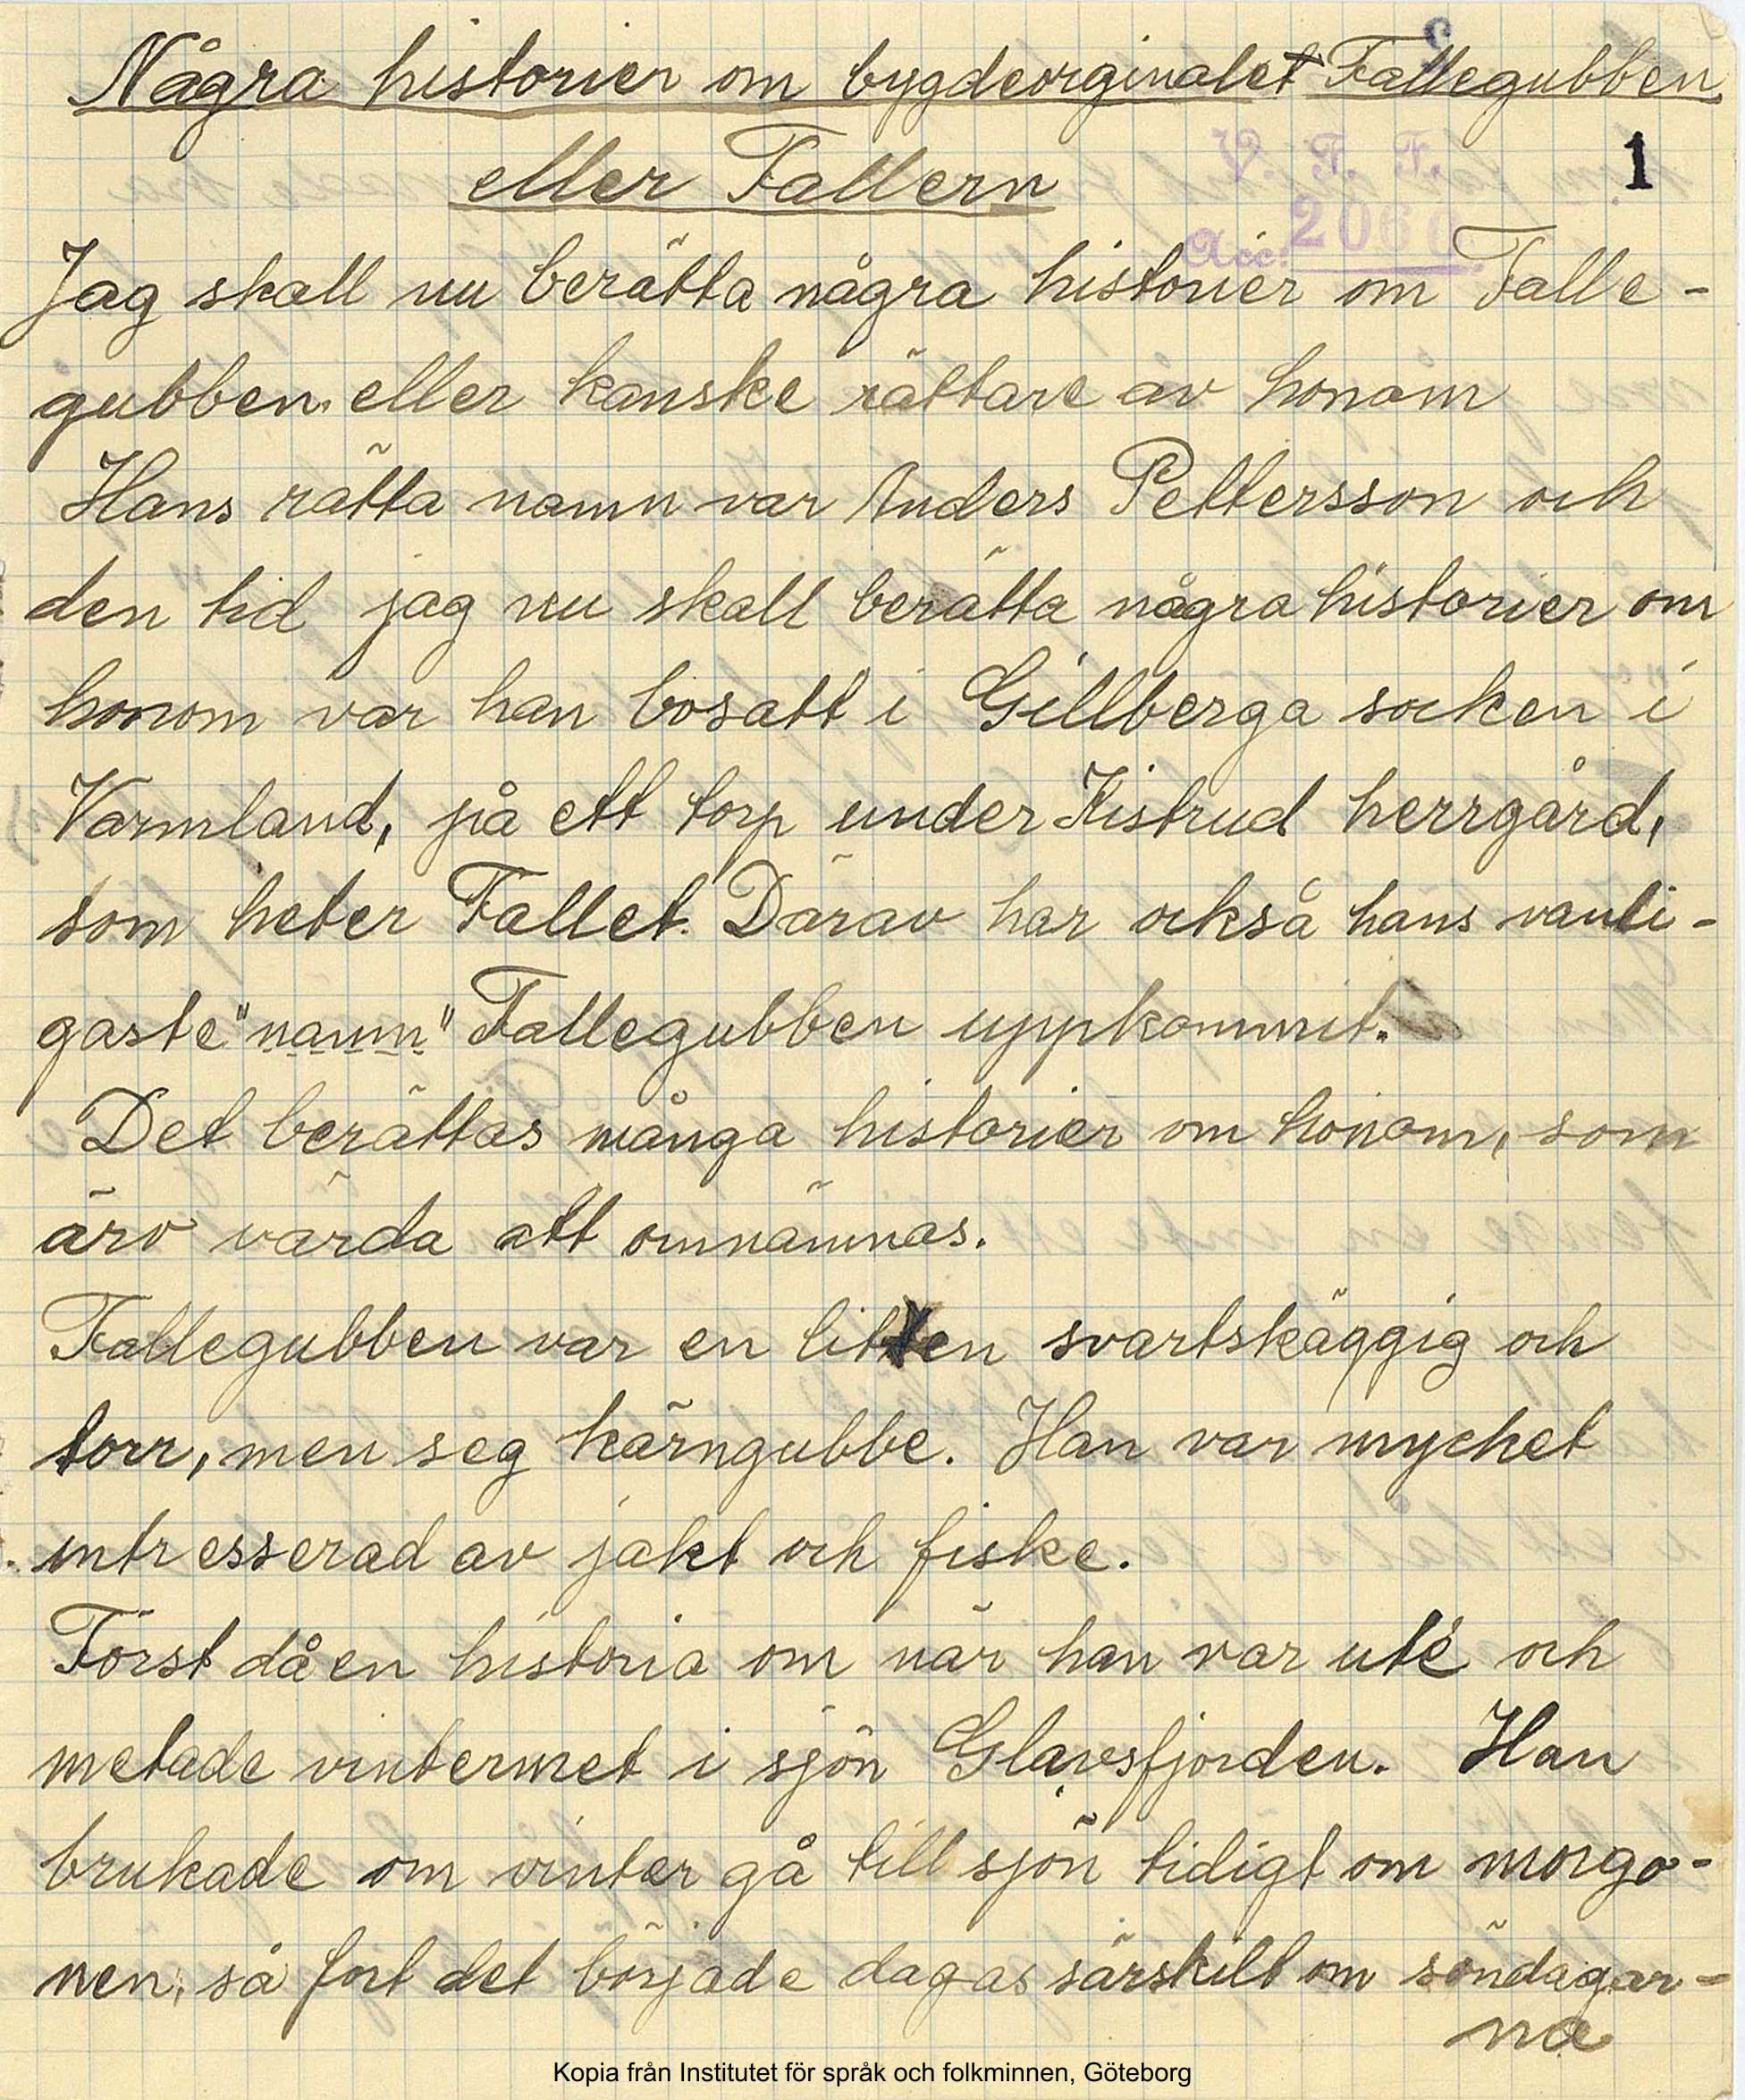 Några historier om bygdeorginalet Fallegubben
eller Fallern
V. F. F.
1
Acc: 2060
Jag skall nu berätta några historier om Falle-
gubben eller kanske rättare av honom
Hans rätta namn var Anders Pettersson och
den tid jag nu skall berätta några historier om
honom var han bosatt i Gillberga socken i
Värmland, på ett torp under Kistrud herrgård,
som heter Fallet. Därav har också hans vanli-
gaste "namn" Fallegubben uppkommit.
Det berättas många historier om honom, som
äro värda att omnämnas.
Fallegubben var en liten svartskäggig och
torr, men seg kärngubbe. Han var mycket
intresserad av jakt och fiske.
Först då en historia om när han var ute och
metade vintermet i sjön Glavsfjorden. Han
brukade om vinter gå till sjön tidigt om morgo-
nen, så fort det började dagas särskilt om söndagar-
na
Kopia från Institutet för språk och folkminnen, Göteborg